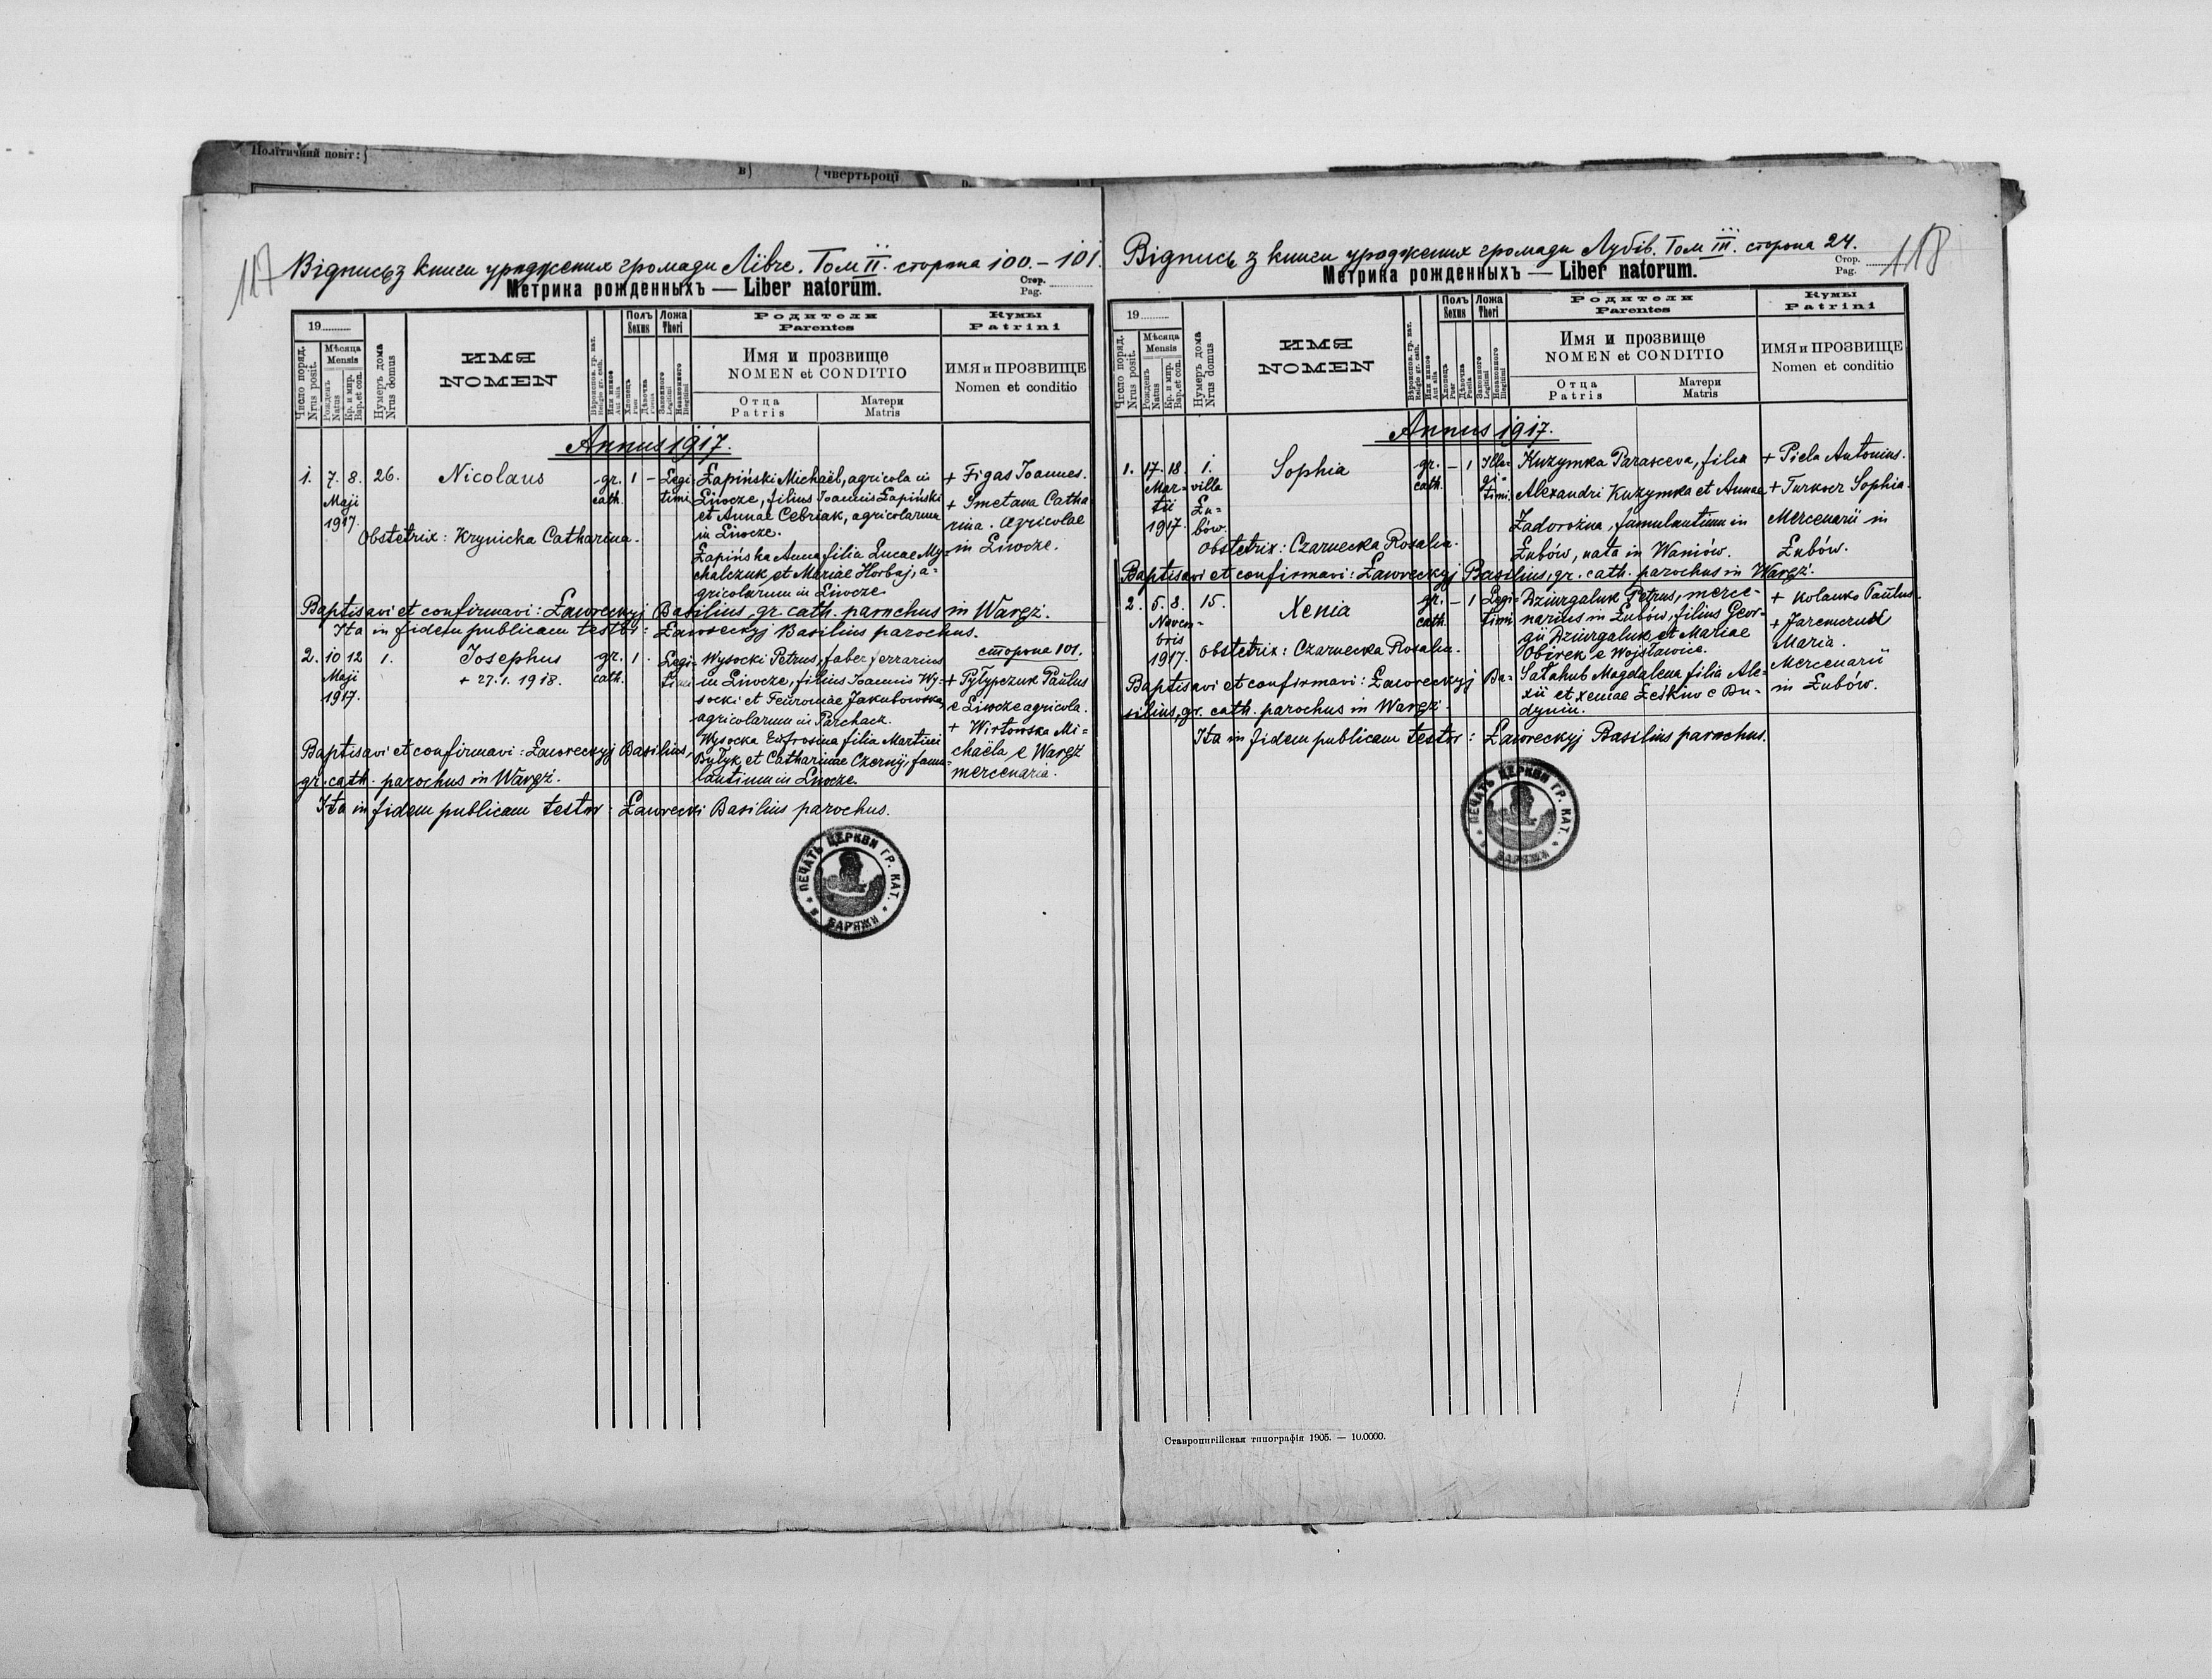 Політичний повіт:
в) ( чвертьроцї
117
Відпись з книги уроджених громади Лївче. Том II. сторона 100.-101.
Метрика рожденныхъ — Liber natorum.
Стор.
Pag.
19
Число поряд.
Nrus posit.
Мѣсяца
Mensis
Рожденъ
Natus
Кр. и мир.
Bap. et con.
Нумеръ дома
Nrus domus
ИМЯ
NOMEN
Вѣроиспов. гр. кат.
Religio gr. cath.
Или инное
Aut alia
Полъ
Sexus
Хлопецъ
Puer
Дѣвочка
Puella
Ложа
Thori
Законного
Legitimi
Незаконного
Illegitimi
Родители
Parentes
Имя и прозвище
NOMEN et CONDITIO
Отца
Patris
Матери
Matris
Кумы
Patrini
ИМЯ и ПРОЗВИЩЕ
Nomen et conditio
Annus 1917.
1. 7. 8. 26. Nicolaus gr. 1 - Legi-
Maji cath. timi
1917.
Obstetrix: Krynicka Catharina.
Łapiński Michaël, agricola in
Liwcze, filius Joannis Łapiński
et Annae Cebriak, agricolarum
in Liwcze.
Łapińska Anna filia Lucae My-
chalczuk et Mariae Horbaj, a-
gricolarum in Liwcze
+ Figas Joannes.
+ Smetana Catha
rina. Agricolae
in Liwcze.
Baptisavi et confirmavi: Ławreckyj Basilius, gr. cath. parochus in Waręż.
Ita in fidem publicam testor: Ławreckyj Basilius parochus.
2. 10 12 1. Josephus gr. 1 Legi-
Maji + 27. 1. 1918. cath. timi
1917.
Wysocki Petrus, faber ferrarius
in Liwcze, filius Joannis Wy-
socki et Feuroniae Jakubowska,
agricolarum in Parchacz.
Wysocka Eufrosina filia Martini
Bytyk et Catharinae Czornij, famu-
lantium in Liwcze.
сторона 101.
+ Pytypczuk Paulus
e Liwcze agricola.
+ Wistowska Mi-
chaëla e Waręż
mercenaria.
Baptisavi et confirmavi: Ławreckyj Basilius,
gr. cath. parochus in Waręż.
Ita in fidem publicam testor: Ławrecki Basilius parochus.
ПЕЧАТЬ ЦЕРКВИ ГР. КАТ.
В ВАРЯЖИ
118
Відпись з книги уроджених громади Лубів. Том III. сторона 24.
Метрика рожденныхъ — Liber natorum.
Стор.
Pag.
19
Число поряд.
Nrus posit.
Мѣсяца
Mensis
Рожденъ
Natus
Кр. и мир.
Bap. et con.
Нумеръ дома
Nrus domus
ИМЯ
NOMEN
Вѣроиспов. гр. кат.
Religio gr. cath.
Или инное
Aut alia
Полъ
Sexus
Хлопецъ
Puer
Дѣвочка
Puella
Ложа
Thori
Законного
Legitimi
Незаконного
Illegitimi
Родители
Parentes
Имя и прозвище
NOMEN et CONDITIO
Отца
Patris
Матери
Matris
Кумы
Patrini
ИМЯ и ПРОЗВИЩЕ
Nomen et conditio
Annus 1917.
1. 17. 18. 1. Sophia gr. - 1 Ille-
Mar- villa cath. gi-
tii Łu- timi.
1917. bów.
Obstetrix: Czarnecka Rosalia.
Kuzymka Parasceva, filia
Alexandri Kuzymka et Annae
Zadorożna, famulantium in
Łubów, nata in Waniów.
+ Pieła Antonius.
+ Turkoer Sophia.
Mercenarii in
Łubów.
Baptisavi et confirmavi: Ławreckyj Basilius, gr. cath. parochus in Waręż.
2. 5. 8. 15. Xenia gr. - 1 Legi-
Novem- cath. timi
bris
1917.
Obstetrix: Czarnecka Rosalia.
Dziurgaluk Petrus, merce-
narius in Łubów, filius Geor-
gii Dziurgaluk et Mariae
Obirek e Wojsławice.
Satahub Magdalena filia Ale-
xii et Xeniae Leśkiw e Bu-
dynin.
+ Kolanko Paulus.
+ Jaremczuk
Maria.
Mercenarii
in Łubów.
Baptisavi et confirmavi: Ławreckyj Ba-
silius, gr. cath. parochus in Waręż.
Ita in fidem publicam testor: Ławreckyj Basilius parochus.
ПЕЧАТЬ ЦЕРКВИ ГР. КАТ.
ВАРЯЖИ
Ставропигійская типографія 1905. — 10.0000.